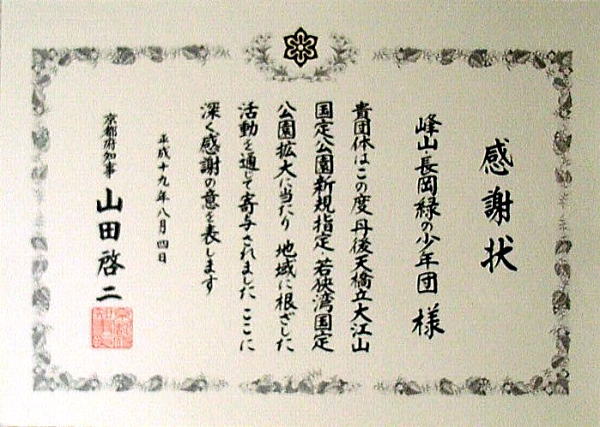 感謝状
峰山・長岡緑の少年団 様
貴団体はこの度丹後天橋立大江山
国定公園新規指定 若狭湾国定
公園拡大に当たり 地域に根ざした
活動を通じて寄与されました ここに
深く感謝の意を表します
平成十九年八月四日
京都府知事 山田啓二